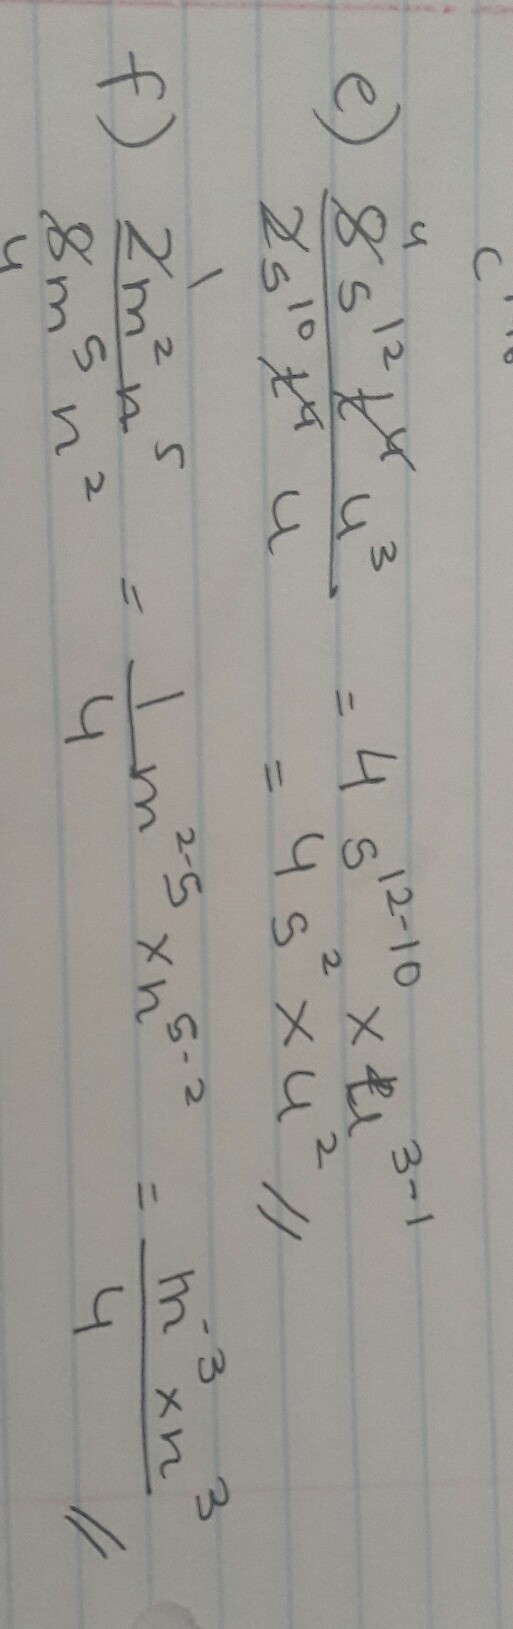 e) 8⁴ s¹² t⁴ u³ / 2 s¹⁰ t⁴ u = 4 s¹²⁻¹⁰ × u³⁻¹
= 4 s² × u² //
f) 2¹ m² n⁵ / 8₄ m⁵ n² = 1/4 m²⁻⁵ × n⁵⁻² = m⁻³ × n³ / 4 //